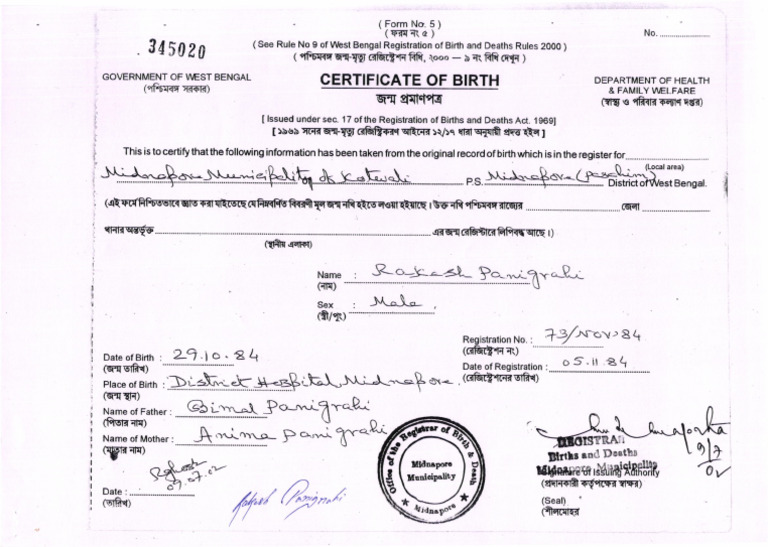 ( Form No. 5 )
( ফরম নং ৫ )
345020
No. ....................
( See Rule No 9 of West Bengal Registration of Birth and Deaths Rules 2000 )
( পশ্চিমবঙ্গ জন্ম-মৃত্যু রেজিস্ট্রেশন বিধি, ২০০০ — ৯ নং বিধি দেখুন )
GOVERNMENT OF WEST BENGAL
(পশ্চিমবঙ্গ সরকার)
CERTIFICATE OF BIRTH
জন্ম প্রমাণপত্র
DEPARTMENT OF HEALTH
& FAMILY WELFARE
(স্বাস্থ্য ও পরিবার কল্যাণ দপ্তর)
[ Issued under sec. 17 of the Registration of Births and Deaths Act. 1969]
[ ১৯৬৯ সনের জন্ম-মৃত্যু রেজিস্ট্রিকরণ আইনের ১২/১৭ ধারা অনুযায়ী প্রদত্ত হইল ]
This is to certify that the following information has been taken from the original record of birth which is in the register for
(Local area)
Midnapore Municipality of Kotwali P.S. Midnapore (Paschim) District of West Bengal.
(এই ফর্মে নিশ্চিতভাবে জ্ঞাত করা যাইতেছে যে নিম্নবর্ণিত বিবরণী মূল জন্ম নথি হইতে লওয়া হইয়াছে। উক্ত নথি পশ্চিমবঙ্গ রাজ্যের জেলা
থানার অন্তর্ভুক্ত এর জন্ম রেজিস্টারে লিপিবদ্ধ আছে।)
(স্থানীয় এলাকা)
Name : Rakash Panigrahi
(নাম)
Sex : Male
(স্ত্রী/পুং)
Registration No. : 73/Nov.84
(রেজিস্ট্রেশন নং)
Date of Birth : 29.10.84
(জন্ম তারিখ)
Date of Registration : 05.11.84
(রেজিস্ট্রেশনের তারিখ)
Place of Birth : District Hospital Midnapore.
(জন্ম স্থান)
Name of Father : Bimal Panigrahi
(পিতার নাম)
Name of Mother : Anima Panigrahi
(মাতার নাম)
Office of the Registrar of Birth & Deaths
Midnapore
Municipality
Midnapore
9/7
02
REGISTRAR
Births and Deaths
Midnapore Municipality
Signature of Issuing Authority
(প্রদানকারী কর্তৃপক্ষের স্বাক্ষর)
(Seal)
(শীলমোহর
09.07.02
Date :
(তারিখ)
Panigrahi